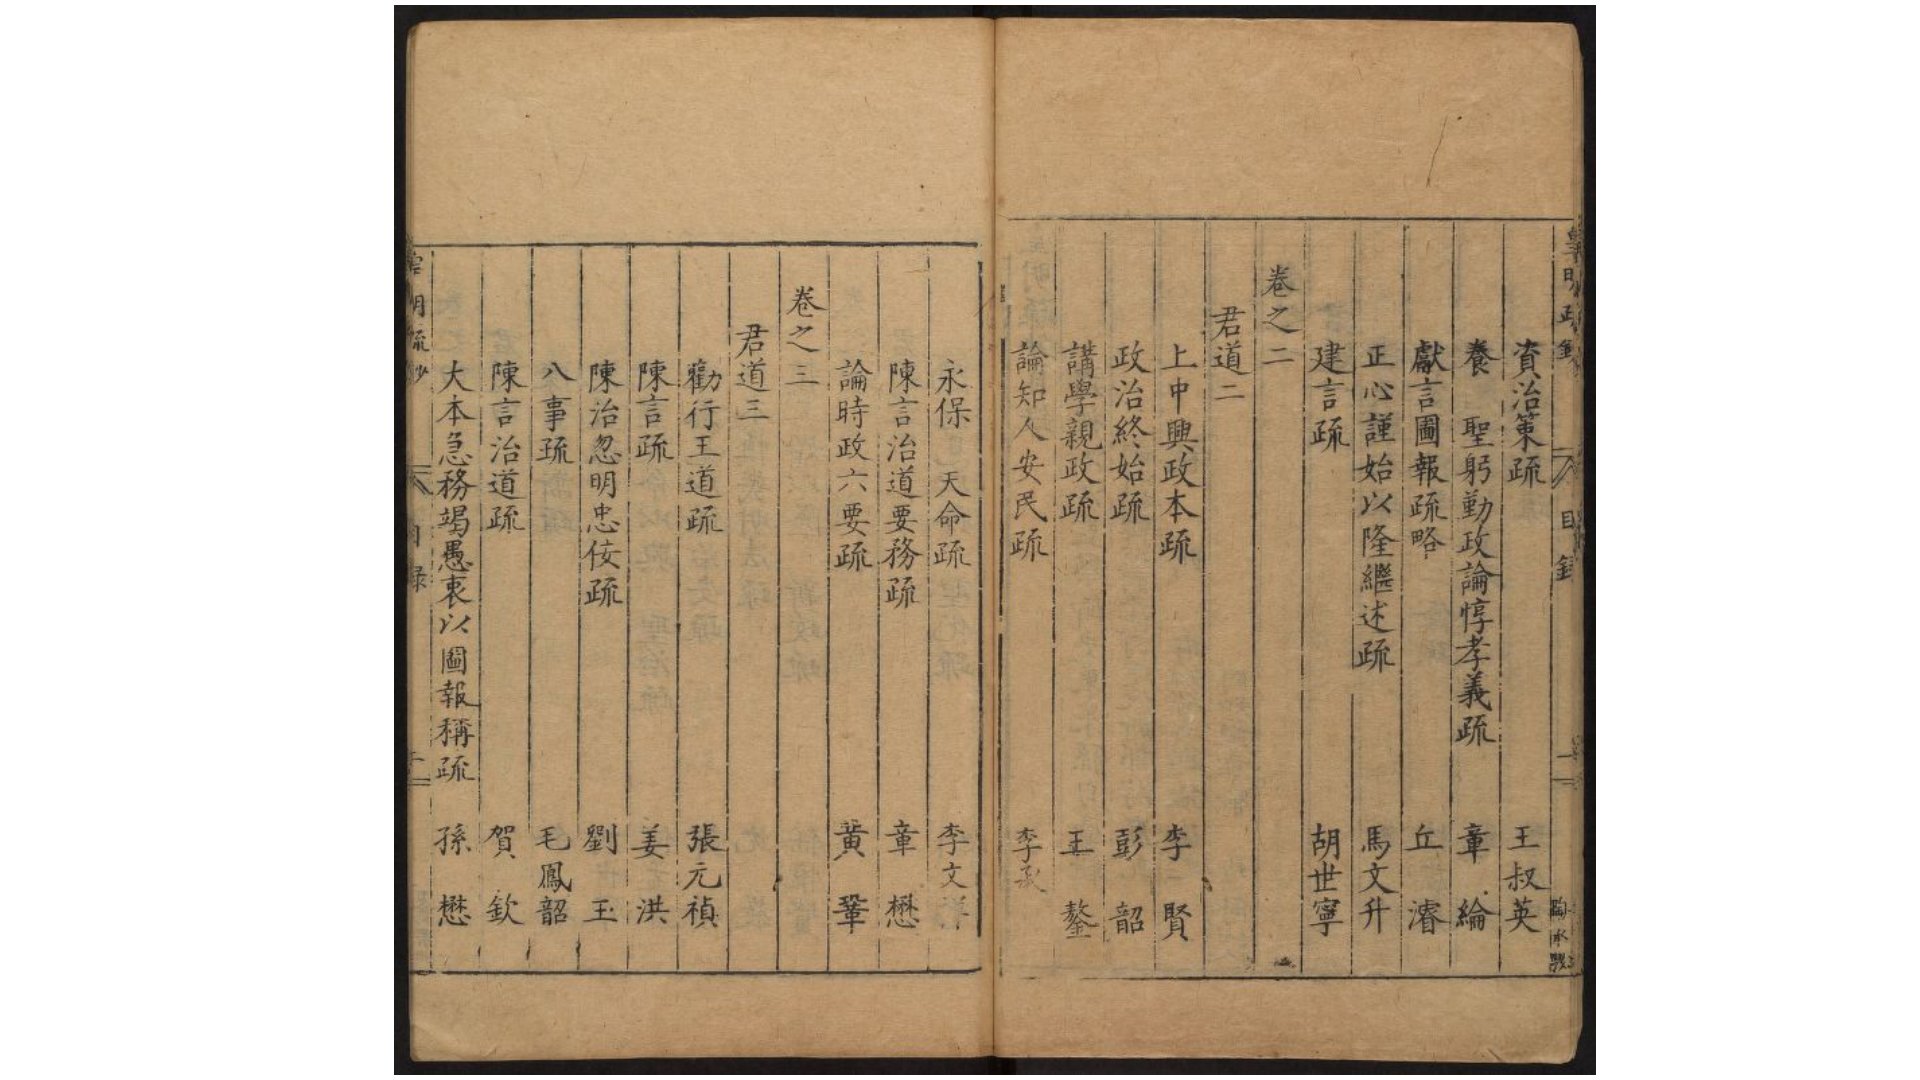 資治策疏 王叔英
養 聖躬勤政論惇孝義疏 章綸
獻言圖報疏略 丘濬
正心謹始以隆繼述疏 馬文升
建言疏 胡世寧
卷之二
君道二
上中興政本疏 李賢
政治終始疏 彭韶
講學親政疏 王鏊
論知人安民疏 李承
永保 天命疏 李文
陳言治道要務疏 章懋
論時政六要疏 黃鞏
卷之三
君道三
勸行王道疏 張元禎
陳言疏 姜洪
陳治忽明忠佞疏 劉玉
八事疏 毛鳳韶
陳言治道疏 賀欽
大本急務竭愚衷以圖報稱疏 孫懋
目錄